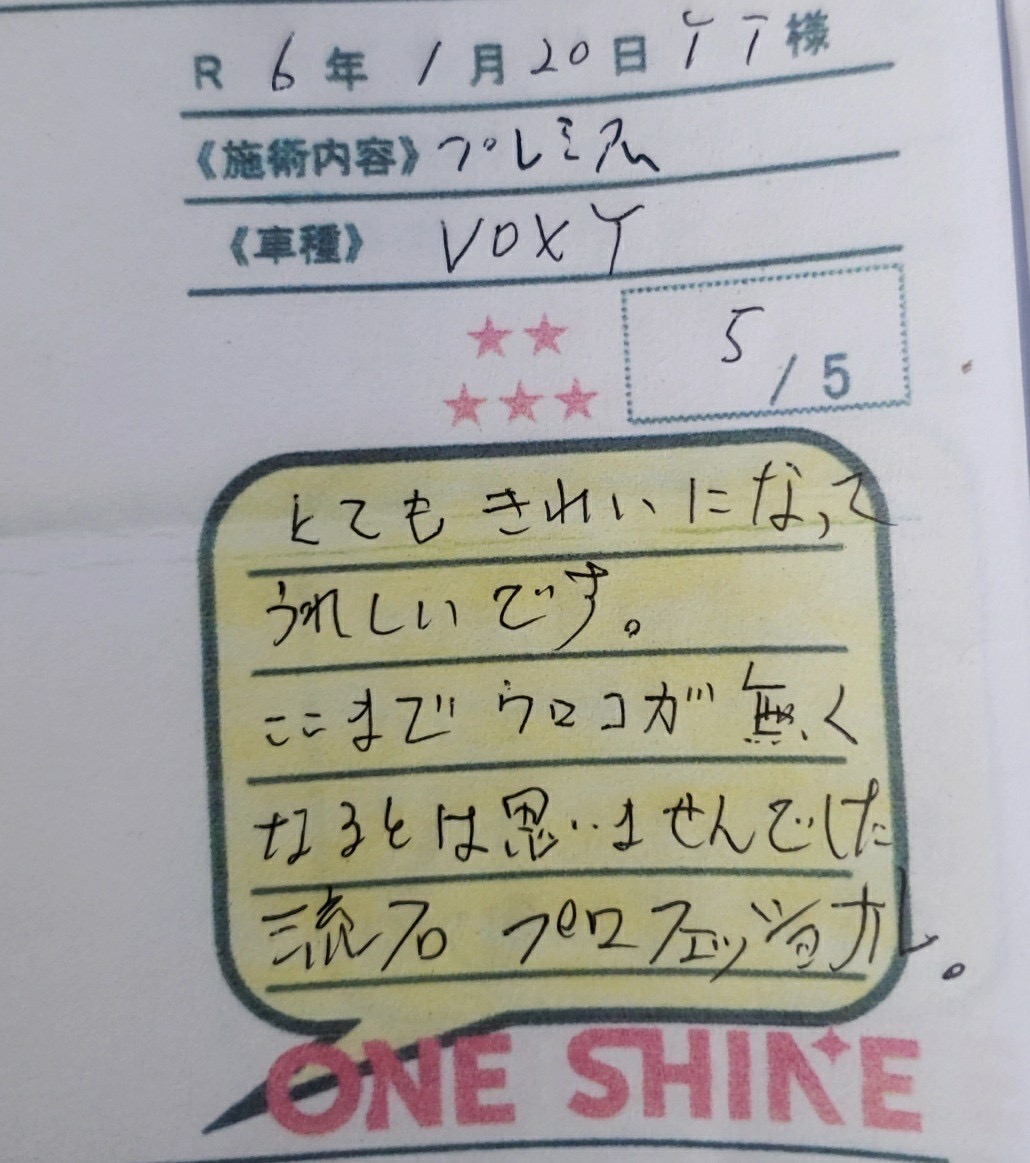 R 6年 1月20日 YT様
《施術内容》プレミアム
《車種》 VOXY
5/5
とても きれいになって
うれしいです。
ここまで ウロコが 無く
なるとは思いませんでした
流石 プロフェッショナル。
ONE SHINE